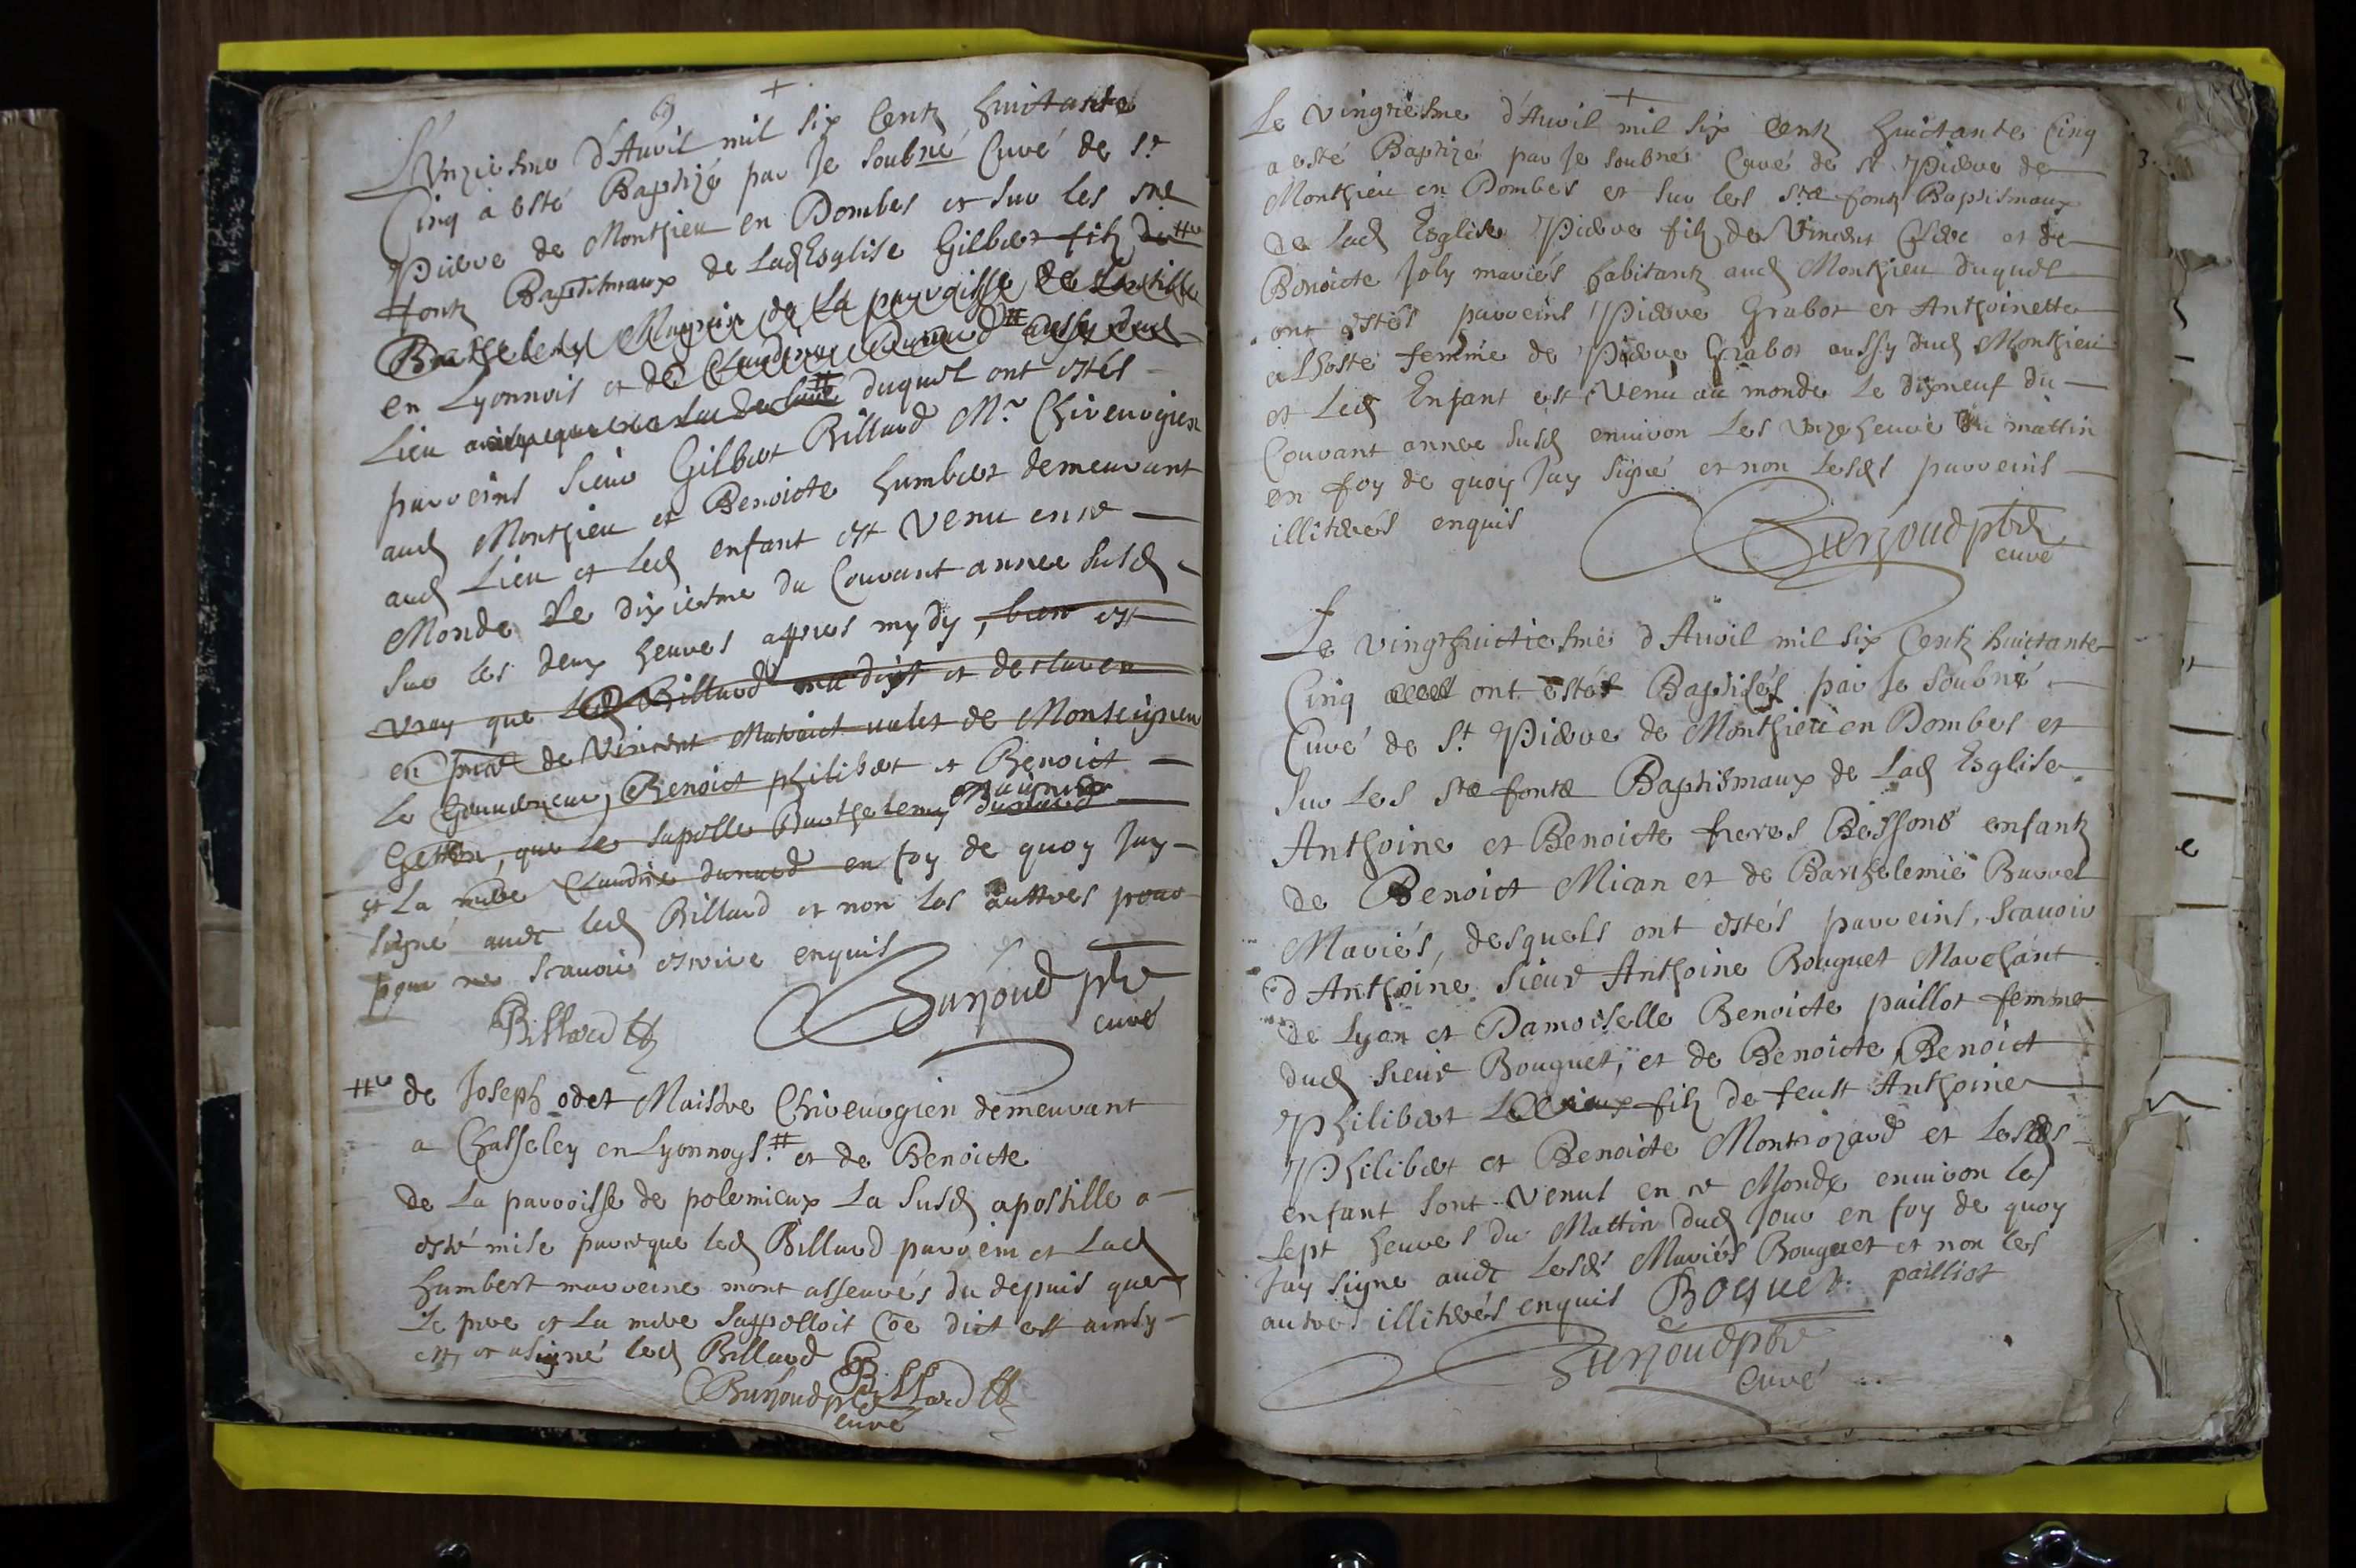 L'Unziesme d'Avril mil six Centz huictante
Cinq a esté Baptizé par Je soubné Curé de St
Pierre de Monthieu en Dombes et sur les ste
fontz Baptismaux de lad Esglise Gilbert filz de #
Barthelemy de la parroisse de
en Lyonnois et de Claudine Dunard # aussy dud
Lieu duquel ont estés
parreins sieur Gilbert Billard Mr Chireurgien
aud Monthieu et Benoicte humbert demeurant
aud Lieu et led enfant est venu en ce
Monde Le dixiesme du Courant annee susd
sur les deux heures apres mydy, bien est
vray que led Billard ma dict et declaré en
en pnce de Vincent valet de Monseigneur
le Gouverneur, Benoict philibert et Benoict
que le sapelle Barthelemy
et La mere Claudine dunard en foy de quoy Jay
signé avec led Billard et non les auttres pour
pour ne scavoir escrire enquis
Burjoud ptre
curé
Billard
# de Joseph odet Maistre Chireurgien demeurant
a Chasseley en Lyonnoys # et de Benoicte
de La parroisse de polemieux La susd apostille a
esté mise parceque led Billard parrein et Lad
humbert marreine mont asseurés du depuis que
Le pere et La mere sappelloit Coe dict est ainsy
et a signé led Billard
Burjoud ptre Billard
curé
Le vingtiesme d'Avril mil six centz huictante Cinq
a esté Baptizé par Je soubné Curé de st Pierre de
Monthieu en Dombes et sur les ste fontz Baptismaux
de lad Esglise Pierre filz de Vincent Clerc et de
Benoicte Joly mariés habitantz aud Monthieu duquel
ont estés parreins Pierre Grabot et Anthoinette
alhoste femme de Pierre Grabot aussy dud Monthieu
et Led Enfant est Venu au monde Le dixneuf du
Courant annee susd environ Les unze heure du mattin
en foy de quoy Jay signé et non lesds parreins
illiterés enquis
Burjoud ptre
curé
Le vingthuictiesme d'Avril mil six Centz huictante
Cinq ont estés Baptisés par Je soubné
Curé de St Pierre de Monthieu en Dombes et
sur Les ste fonts Baptismaux de Lad Esglise
Anthoine et Benoicte freres Bessons enfantz
de Benoict Mican et de Barthelemie Burret
Mariés, desquels ont estés parreins, scavoir
d'Anthoine sieur Anthoine Bouguet Marchant
de Lyon et Damoiselle Benoicte paillot femme
dud sieur Bouguet, et de Benoicte, Benoict
Philibert filz de feutt Anthoine
Philibert et Benoicte Montrozard et Lesds
enfant sont venus en ce Monde environ les
sept heures du Mattin dud Jour en foy de quoy
Jay signe avec Lesds Mariés Bouguet et non les
autres illiterés enquis Boguet pailliot
Burjoud ptre
Curé